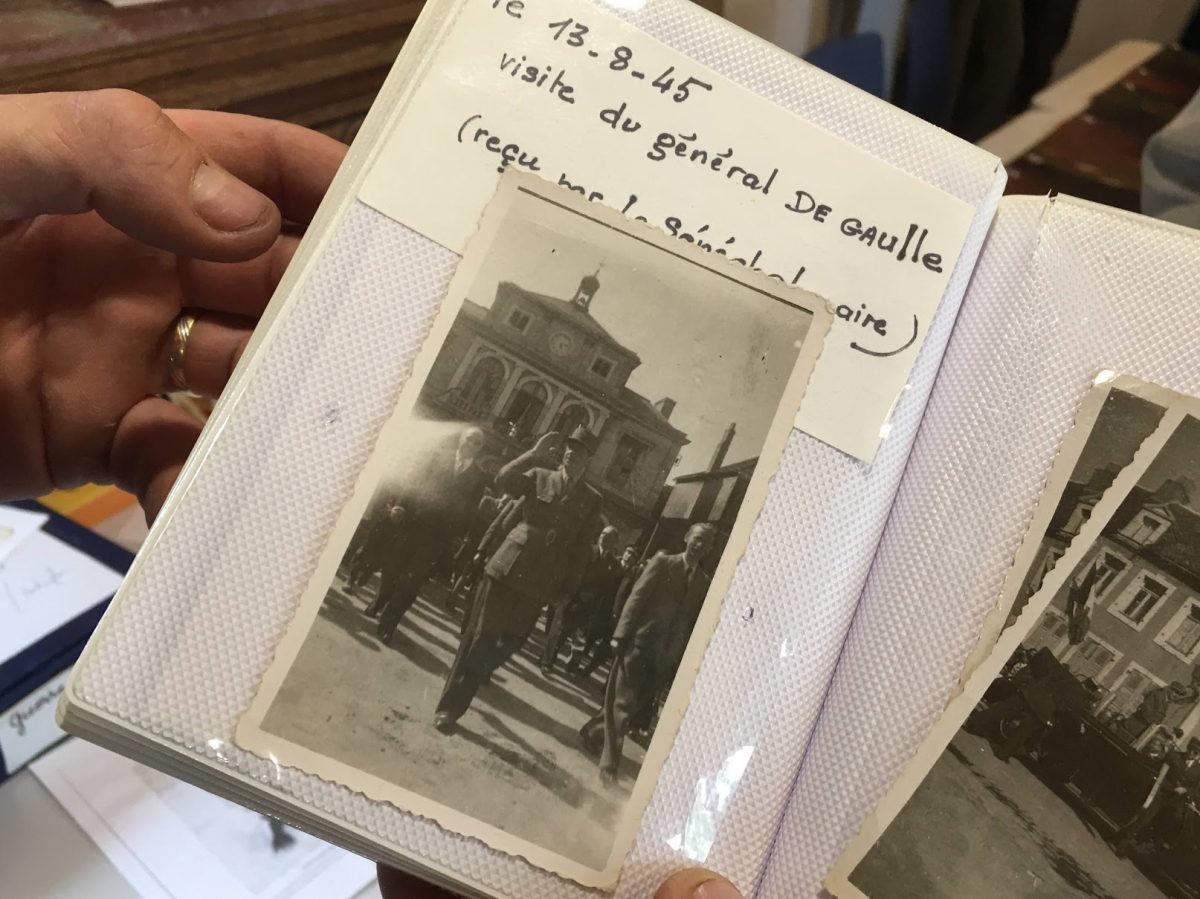 le 13-8-45
visite du général DE GAulle
(reçu par le Sénéchal aire)
guerre